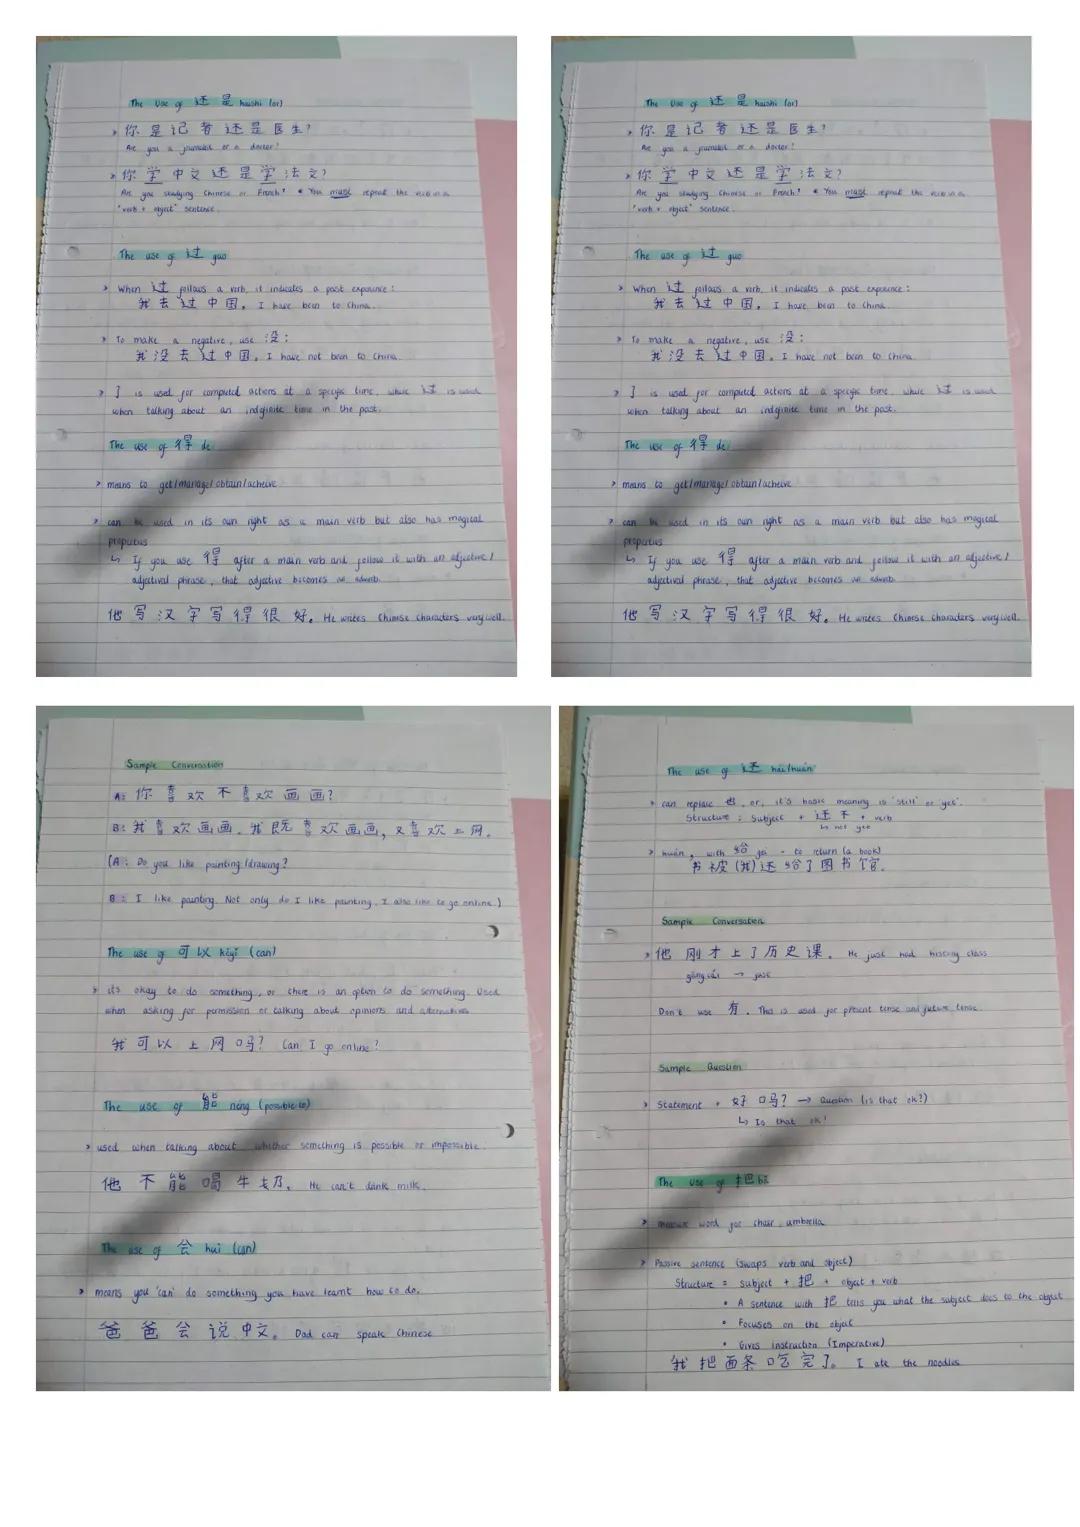 The Use of 还是 haishi (or)
> 你是记者还是医生?
Are you a journalist or a doctor?
> 你学中文还是学法文?
Are you studying Chinese or French? * You must repeat the verb in a
'verb + object' sentence.
The use of 过 guo
> When 过 follows a verb, it indicates a past experience:
我去过中国。 I have been to China.
> To make a negative, use 没:
我没去过中国。 I have not been to China.
> 了 is used for completed actions at a specific time, while 过 is used
when talking about an indefinite time in the past.
The use of 得 de
> means to get/manage/obtain/acheive
> can be used in its own right as a main verb but also has magical
properties
↳ If you use 得 after a main verb and follow it with an adjective/
adjectival phrase, that adjective becomes an adverb.
他写汉字写得很好。 He writes Chinese characters very well.
The Use of 还是 haishi (or)
> 你是记者还是医生?
Are you a journalist or a doctor?
> 你学中文还是学法文?
Are you studying Chinese or French? * You must repeat the verb in a
'verb + object' sentence.
The use of 过 guo
> When 过 follows a verb, it indicates a past experience:
我去过中国。 I have been to China.
> To make a negative, use 没:
我没去过中国。 I have not been to China.
> 了 is used for completed actions at a specific time, while 过 is used
when talking about an indefinite time in the past.
The use of 得 de
> means to get/manage/obtain/acheive
> can be used in its own right as a main verb but also has magical
properties
↳ If you use 得 after a main verb and follow it with an adjective/
adjectival phrase, that adjective becomes an adverb.
他写汉字写得很好。 He writes Chinese characters very well.
Sample Conversation
A: 你喜欢不喜欢画画?
B: 我喜欢画画。我既喜欢画画, 又喜欢上网。
(A: Do you like painting/drawing?
B: I like painting. Not only do I like painting, I also like to go online.)
The use of 可以 kěyǐ (can)
> it's okay to do something, or there is an option to do something. Used
when asking for permission or talking about opinions and alternatives
我可以上网吗? Can I go online?
The use of 能 néng (possible to)
> used when talking about whether something is possible or impossible.
他不能喝牛奶。 He can't drink milk.
The use of 会 huì (can)
> means you 'can' do something you have learnt how to do.
爸爸会说中文。 Dad can speak Chinese
The use of 还 hái/huán
> can replace 也, or, it's basic meaning is 'still' or 'yet'.
Structure: Subject + 还不 + verb
↳ not yet
> huán, with 给 gei - to return (a book)
书被(我)还给了图书馆。
Sample Conversation
> 他刚才上了历史课。 He just had history class
gāng cái → just
Don't use 有. This is used for present tense and future tense.
Sample Question
> Statement + 好吗? → Question (is that ok?)
↳ Is that ok?
The use of 把 bǎ
> measure word for chair, umbrella
> Passive sentence (swaps verb and object)
Structure = subject + 把 + object + verb
• A sentence with 把 tells you what the subject does to the object
• Focuses on the object
• Gives instruction (Imperative)
我把面条吃完了。 I ate the noodles